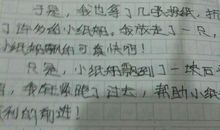 于是，我也拿了几张彩纸，折
了许多的小纸船，我放走了一只，
小纸船飘的可真快啊！
只是，小纸船飘到了一块石
，我在紧跑了过去，帮助小纸
利的前进！